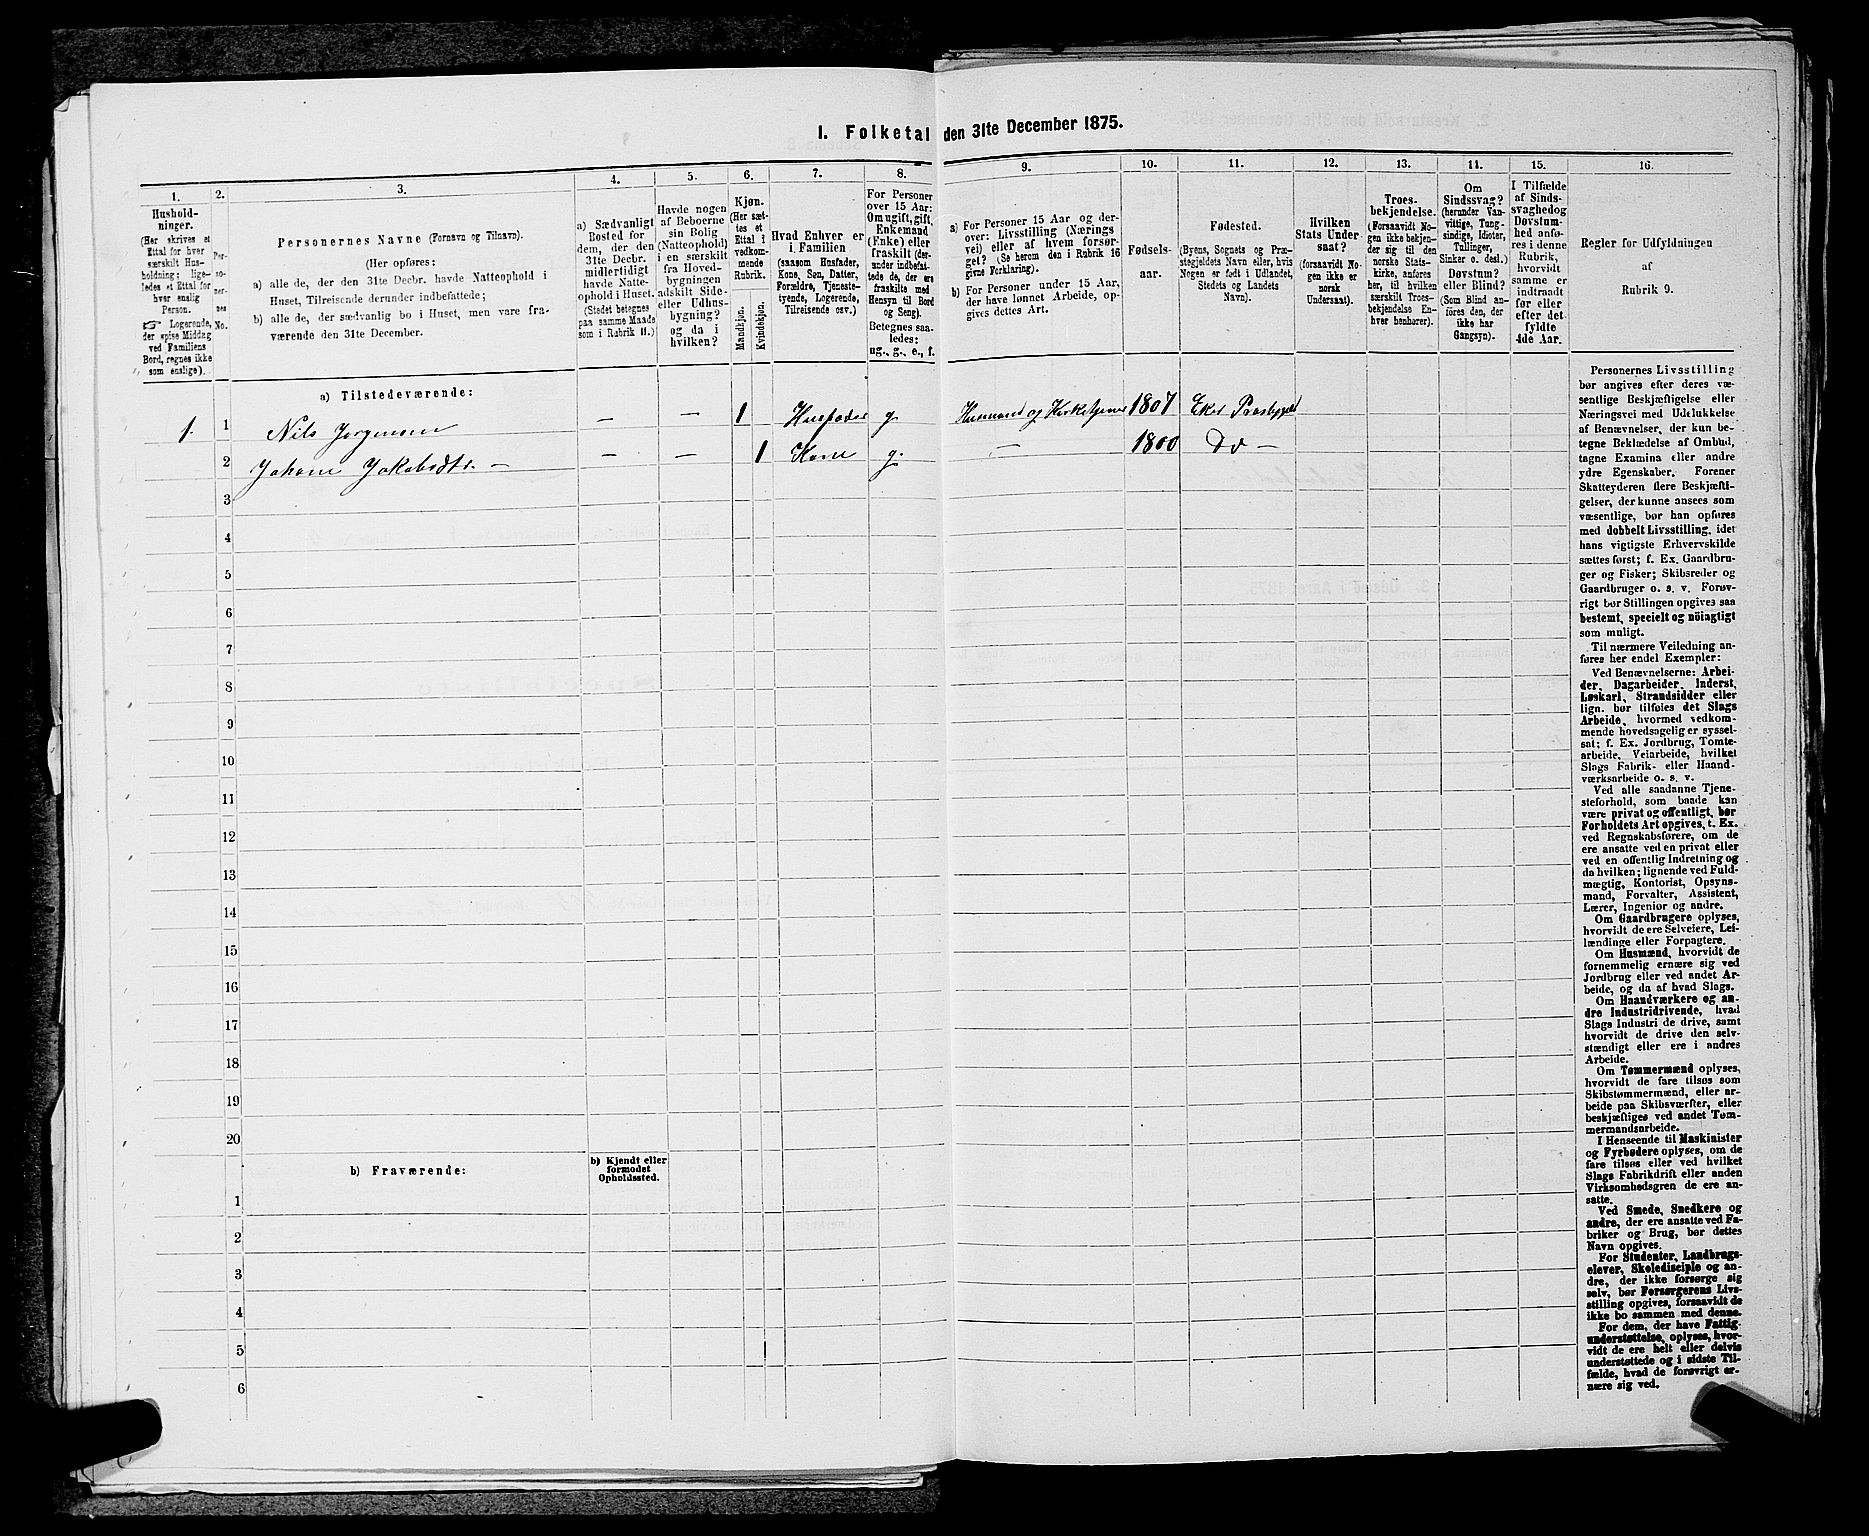 1. Folketal den 31te December 1875.
1.
2.
3.
4.
5.
6.
7.
8.
9.
10.
11.
12.
13.
14.
15.
16.
Hushold-
ninger.
(Her skrives et
Ettal for hver
særskilt Hus-
holdning; lige-
ledes et Ettal for
hver enslig
Person.
☞ Logerende,
der spise Middag
ved Familiens
Bord, regnes ikke
som enslige).
Per-
so-
ner-
nes
No.
Personernes Navne (Fornavn og Tilnavn).
(Her opføres:
a) alle de, der den 31te Decbr. havde Natteophold i
Huset, Tilreisende derunder indbefattede;
b) alle de, der sædvanlig bo i Huset, men vare fra-
værende den 31te December.
a) Sædvanligt
Bosted for
dem, der den
31te Decbr.
midlertidigt
havde Natte-
ophold i Huset.
(Stedet betegnes
paa samme Maade
som i Rubrik 11.)
Havde nogen
af Beboerne
sin Bolig
(Natteophold)
i en særskilt
fra Hoved-
bygningen
adskilt Side-
eller Udhus-
bygning?
og da i
hvilken?
Kjøn.
(Her sæt-
tes et
Ettal i
vedkom-
mende
Rubrik.
Mandkjøn.
Kvindekjøn.
Hvad Enhver er
i Familien
(saasom Husfader,
Kone, Søn, Datter,
Forældre, Tjeneste-
tyende, Logerende,
Tilreisende osv.)
For Personer
over 15 Aar:
Om ugift, gift,
Enkemand
(Enke) eller
fraskilt (der-
under indbefat-
tede de, der ere
fraskilte med
Hensyn til Bord
og Seng).
Betegnes saa-
ledes:
ug., g., e., f.
a) For Personer 15 Aar og der-
over: Livsstilling (Nærings
vei) eller af hvem forsør-
get? (Se herom den i Rubrik 16
givne Forklaring).
b) For Personer under 15 Aar,
der have lønnet Arbeide, op-
gives dettes Art.
Fødsels-
aar.
Fødested.
(Byens, Sognets og Præ-
stegjeldets Navn eller, hvis
Nogen er født i Udlandet,
Stedets og Landets
Navn).
Hvilken
Stats Under-
saat?
(forsaavidt No-
gen ikke er
norsk
Undersaat).
Troes-
bekjendelse.
(Forsaavidt No-
gen ikke bekjen-
der sig til den
norske Stats-
kirke, anføres
her, til hvilken
særskilt Troes-
bekjendelse En-
hver henhører).
Om
Sindssvag?
(herunder Van-
vittige, Tung-
sindige, Idioter,
Tullinger,
Sinker o. desl.)
Døvstum?
eller Blind?
(Som Blind an-
føres den, der
ikke har
Gangsyn).
I Tilfælde
af Sinds-
svaghed og
Døvstum-
hed anfø-
res i denne
Rubrik,
hvorvidt
samme er
indtraadt
før eller
efter det
fyldte
4de Aar.
Regler for Udfyldningen
af
Rubrik 9.
a) Tilstedeværende:
1. 1 Nils Jørgensen — — 1 Husfader g. Husmand og Kirketjener 1807 Eker Præstegjeld
2 Johane Jakobsdtr. — — — 1 Kone g. — 1800 Do —
3
4
5
6
7
8
9
10
11
12
13
14
15
16
17
18
19
20
b) Fraværende:
b) Kjendt eller
formodet
Opholdssted.
1
2
3
4
5
6
Personernes Livsstilling
bør angives efter deres væ-
sentlige Beskjæftigelse eller
Næringsvei med Udelukkelse
af Benævnelser, der kun be-
tegne Beklædelse af Ombud,
tagne Examina eller andre
ydre Egenskaber. Forener
Skatteyderen flere Beskjæfti-
gelser, der kunne ansees som
væsentlige, bør han opføres
med dobbelt Livsstilling, idet
hans vigtigste Erhvervskilde
sættes først; f. Ex. Gaardbru-
ger og Fisker; Skibsreder og
Gaardbruger o. s. v. Forøv-
rigt bør Stillingen opgives saa
bestemt, specielt og nöiagtigt
som muligt.
Til nærmere Veiledning an-
føres her endel Exempler:
Ved Benævnelserne: Arbei-
der, Dagarbeider, Inderst,
Løskarl, Strandsidder eller
lign. bør tilføies det Slags
Arbeide, hvormed vedkom-
mende hovedsagelig er syssel-
sat; f. Ex. Jordbrug, Tomte-
arbeide, Veiarbeide, hvilket
Slags Fabrik- eller Haand-
værksarbeide o. s. v.
Ved alle saadanne Tjene-
steforhold, som baade kan
være privat og offentligt, bør
Forholdets Art opgives, t. Ex.
ved Regnskabsførere, om de
ere ansatte ved en privat eller
ved en offentlig Indretning og
da hvilken; lignende ved Fuld-
mægtig, Kontorist, Opsyns-
mand, Forvalter, Assistent,
Lærer, Ingeniør og andre.
Om Gaardbrugere oplyses,
hvorvidt de ere Selveiere, Lei-
lændinge eller Forpagtere.
Om Husmænd, hvorvidt de
fornemmelig ernære sig ved
Jordbrug eller ved andet Ar-
beide, og da af hvad Slags.
Om Haandværkere og an-
dre Industridrivende, hvad
Slags Industri de drive, samt
hvorvidt de drive den selv-
stændigt eller ere i andres
Arbeide.
Om Tømmermænd oplyses,
hvorvidt de fare tilsøs som
Skibstømmermænd, eller ar-
beide paa Skibsværfter, eller
beskjæftiges ved andet Tøm-
mermandsarbeide.
I Henseende til Maskinister
og Fyrbødere oplyses, om de
fare tilsøs eller ved hvilket
Slags Fabrikdrift eller anden
Virksomhedsgren de ere an-
satte.
Ved Smede, Snedkere og
andre, der ere ansatte ved Fa-
briker og Brug, bør dettes
Navn opgives.
For Studenter, Landbrugs-
elever, Skoledisciple og an-
dre, der ikke forsørge sig
selv, bør Forsørgerens Livs-
stilling opgives, forsaavidt de
ikke bo sammen med denne.
For dem, der have Fattig-
understøttelse, oplyses, hvor-
vidt de ere helt eller delvis
understøttede og i sidste Til-
fælde, hvad de forøvrigt er-
nære sig ved.